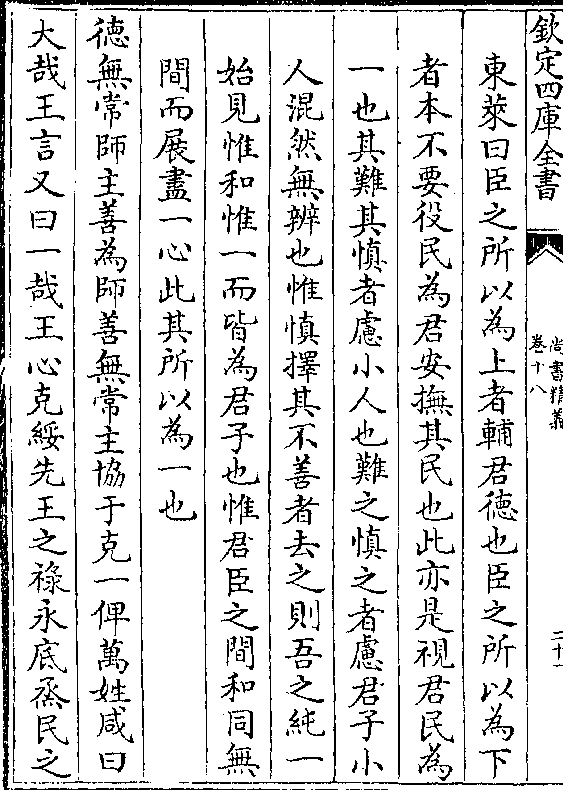 欽定四庫全書
尚書精義
卷十八
二十一
東萊曰臣之所以為上者輔君德也臣之所以為下
者本不要役民為君安撫其民也此亦是視君民為
一也其難其慎者慮小人也難之慎之者慮君子小
人混然無辨也惟慎擇其不善者去之則吾之純一
始見惟和惟一而皆為君子也惟君臣之間和同無
間而展盡一心此其所以為一也
德無常師主善為師善無常主協于克一俾萬姓咸曰
大哉王言又曰一哉王心克綏先王之祿永底烝民之